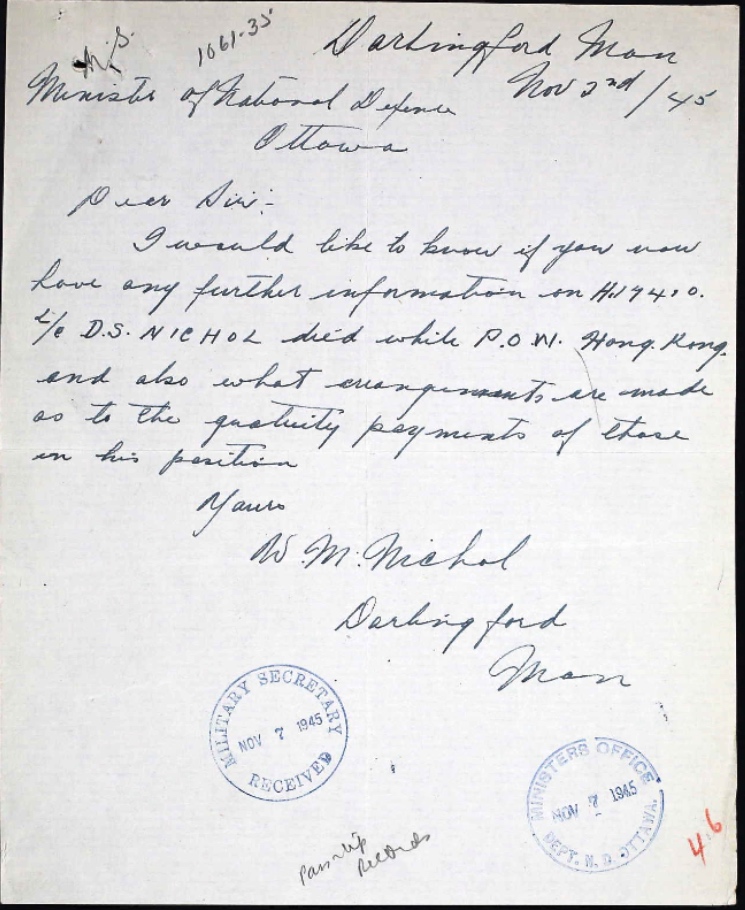 M.S.
1061-35
Darlingford Man
Nov 2nd / 45
Minister of National Defence
Ottawa
Dear Sir:-
I would like to know if you now
have any further information on
L/c D.S. NICHOL died while P.O.W. Hong. Kong.
and also what arrangements are made
as to the gratuity payments of those
in his position
Yours
W. M. Nichol
Darlingford
Man
MILITARY SECRETARY
NOV 7 1945
RECEIVED
MINISTERS OFFICE
NOV 7 1945
DEPT. N. D. OTTAWA.
Records
46